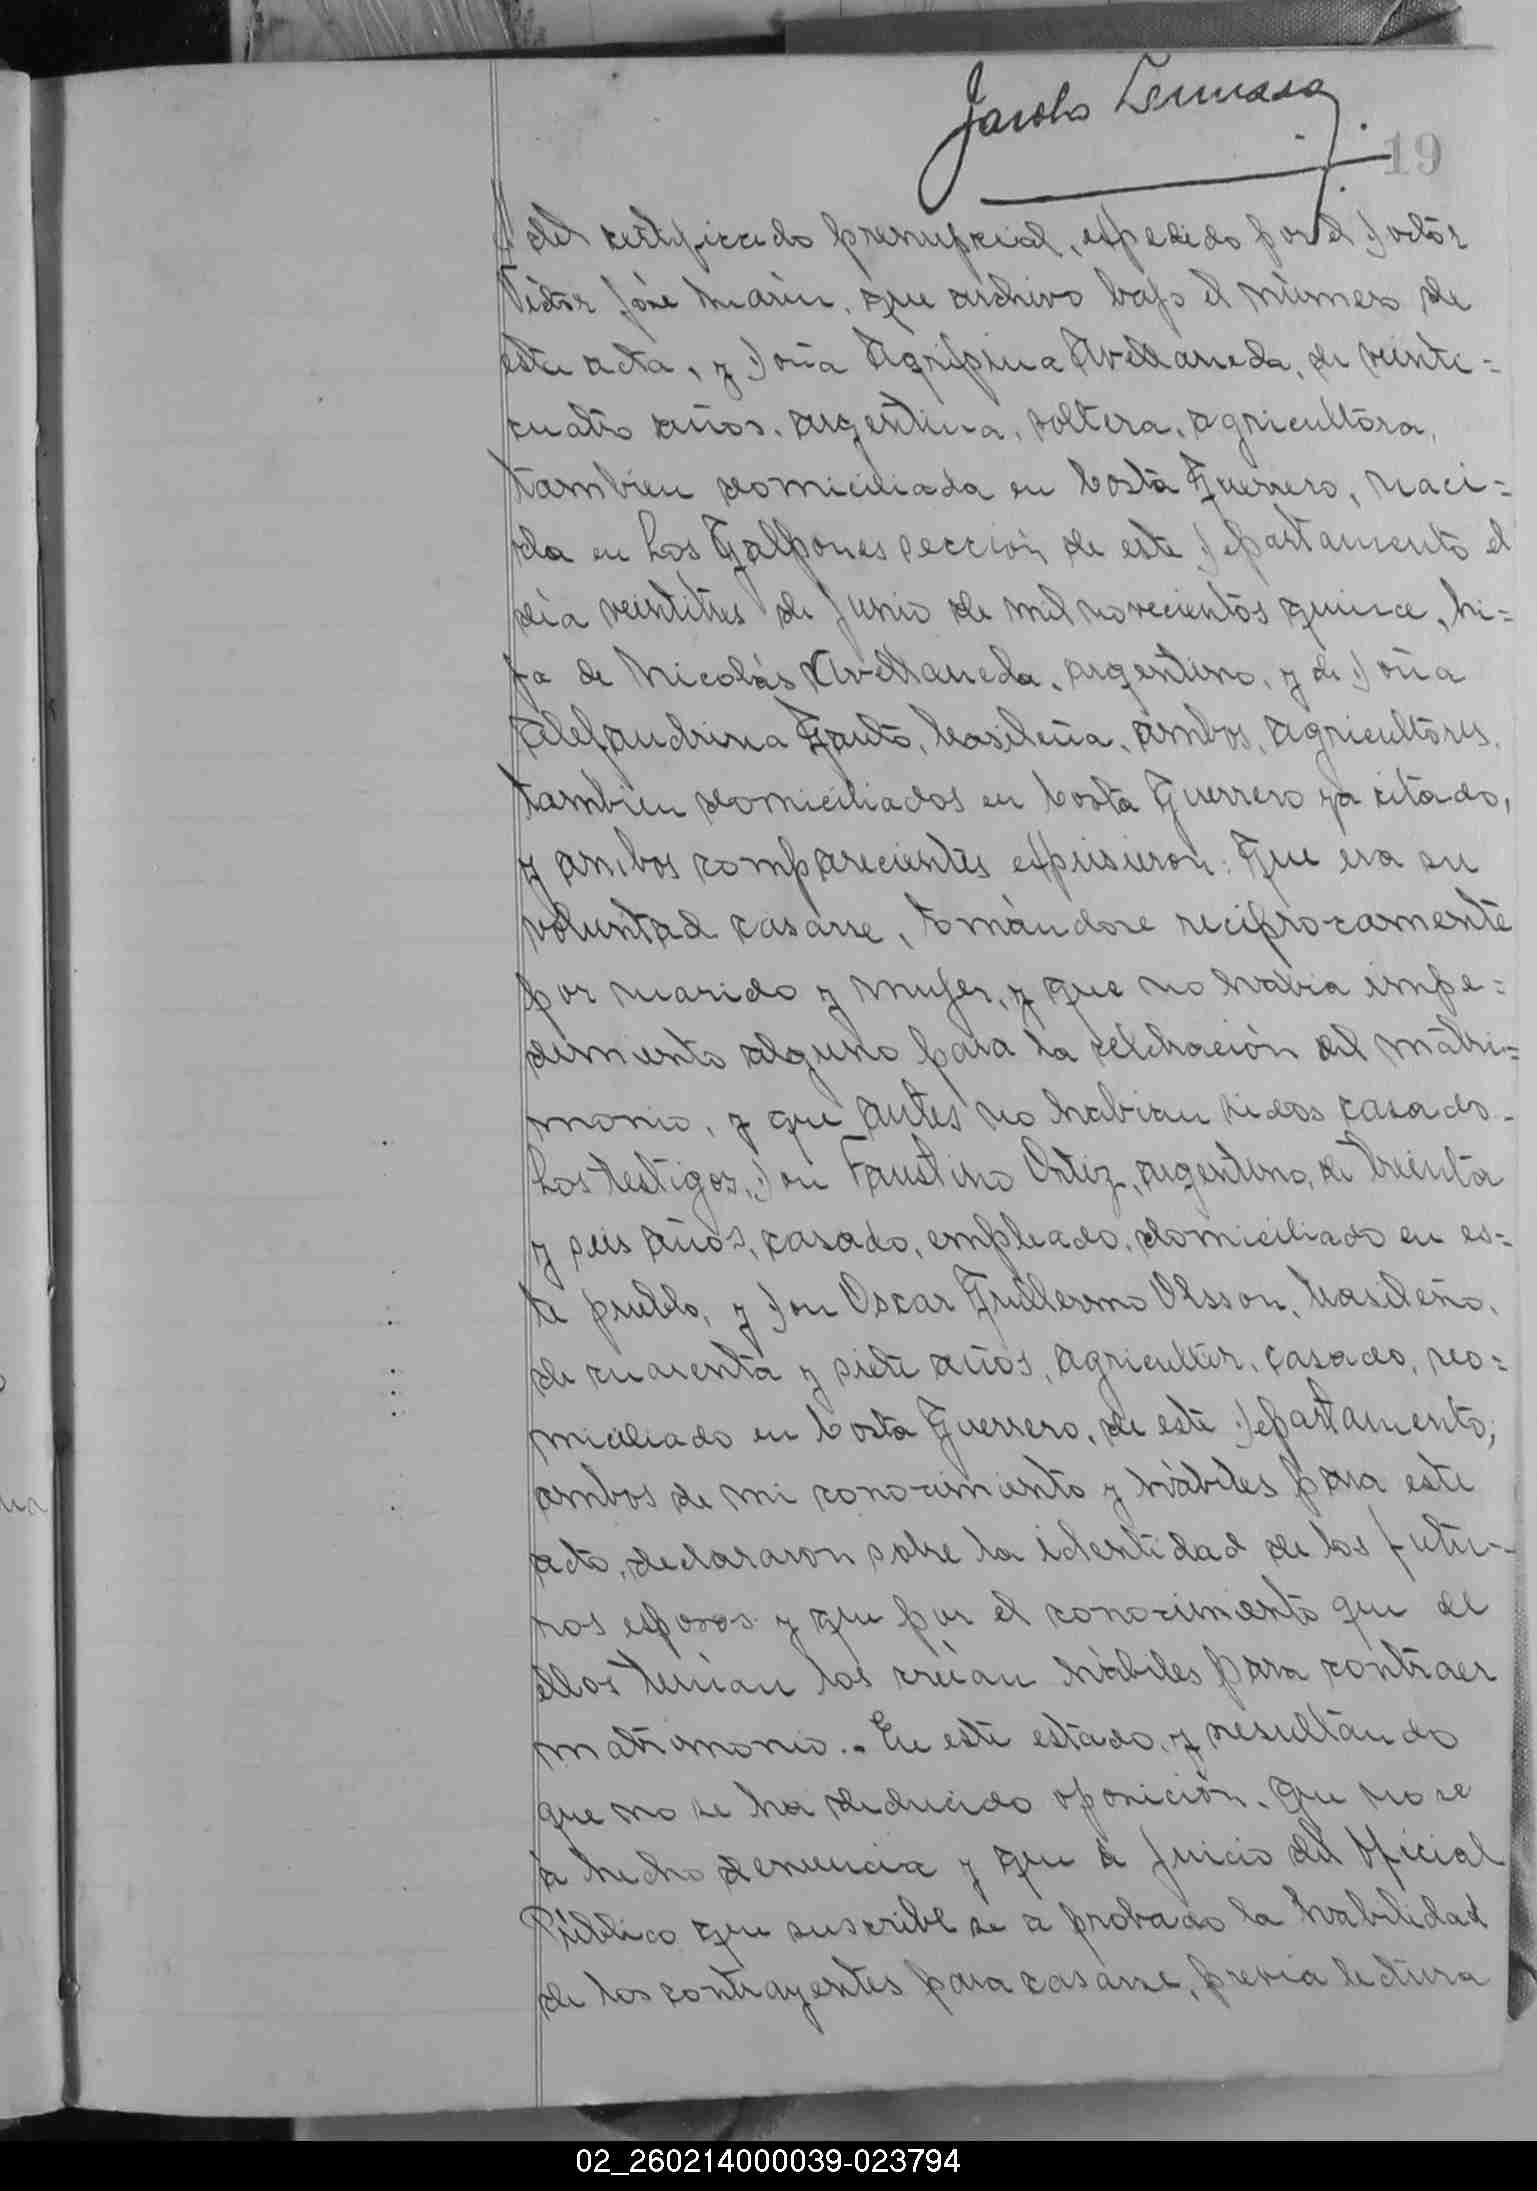 Jacobo
19
del certificado prenupcial, espedido por el Doctor
Víctor José Marin, que archivo bajo el número de
esta acta, y Doña Agripina Avellaneda, de veinte=
cuatro años, argentina, soltera, agricultora,
tambien domiciliada en Costa Guerrero, naci=
da en Los Galpones sección de este Departamento el
día veintitres de Junio de mil novecientos quince, hi=
ja de Nicolás Avellaneda, argentino, y de Doña
Alejandrina Gauto, brasileña, ambos, agricultores,
tambien domiciliados en Costa Guerrero ya citado,
y ambos comparecientes espusieron: Que era su
voluntad casarse, tomándose reciprocamente
por marido y mujer, y que no habia impe=
dimento alguno para la celebración del matri=
monio, y que antes no habian sidos casado.
Los testigos, Don Faustino Ortiz, argentino, de treinta
y seis años, casado, empleado, domiciliado en es=
te pueblo, y Don Oscar Guillermo Olsson, brasileño,
de cuarenta y siete años, agricultor, casado, do=
miciliado en Costa Guerrero, de este Departamento;
ambos de mi conocimiento y hábiles para este
acto, declararon sobre la identidad de los futu-
ros esposos y que por el conocimiento que de
ellos tenian los creian hábiles para contraer
matrimonio.- En este estado, y resultando
que no se ha deducido oposición, que no se
a hecho denuncia y que a juicio del Oficial
Público que suscribe se a probado la habilidad
de los contrayentes para casarse, previa lectura
02_260214000039-023794